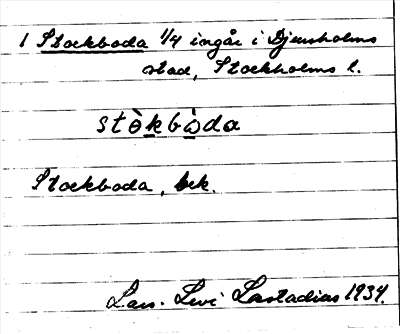 1 Stockboda 1/4 ingår i Djursholms
stad, Stockholms l.
stòkbòda
Stockboda, bek.
Lars-Levi Læstadius 1934.